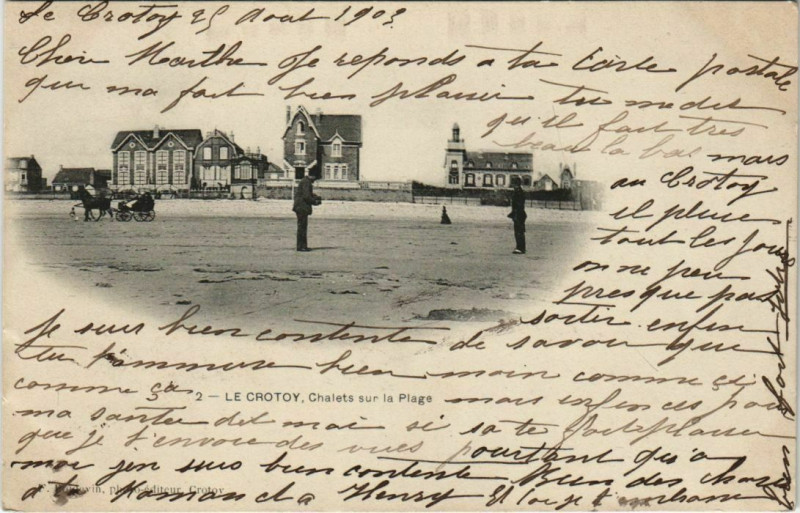 Le Crotoy 25 Aout 1903
Chère Marthe Je reponds a ta Carte postale
qui ma fait bien plaisir tu me dit
qu'il fait tres
beau la bas mais
au Crotoy
il pleut
tout les jours
on ne peu
presque pas
sortir enfin
Je suis bien contente de savoir que
tu t'ammuse bien moin comme ci
comme ça mais enfin
2 — LE CROTOY, Chalets sur la Plage
ma santée dit moi si sa te fait plaisir
que je t'envoie des vues pourtant qu'a
moi j'en suis bien contente Bien des choses
a Maman et a Henry Et
photo-éditeur, Crotoy
bien fort